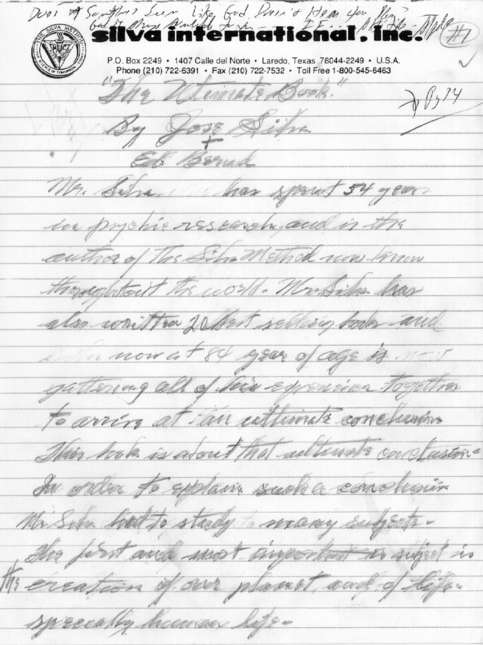 silva international, inc.
#1
P.O. Box 2249 • 1407 Calle del Norte • Laredo, Texas 76044-2249 • U.S.A.
Phone (210) 722-6391 • Fax (210) 722-7532 • Toll Free 1-800-545-6463
"The Ultimate Book."
By Jose Silva
+
Ed Bernd
Mr. Silva has spent 54 years
in psychic research, and is the
author of The Silva Method now known
throughtout the world. Mr Silva has
also written 20 best selling books and
now at 84 year of age is
gathering all of his experience together
to arrive at his ultimate conclusion
This book is about that ultimate conclusion
In order to explain such a conclusion
Mr Silva had to study many subjects.
The first and most important subject is
the creation of our planet, and of life.
specially human life.